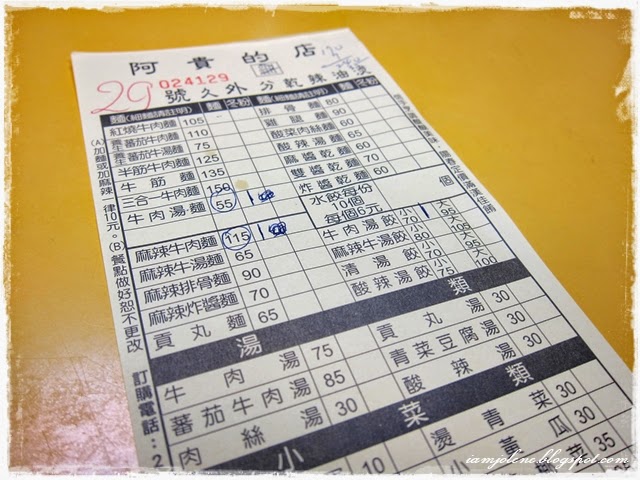 阿貴的店
024129
29 號 久 外 分 乾 辣 油
麵(細麵請註明) 麵 冬粉
紅燒牛肉麵 105
養生番茄牛肉麵 110
養生番茄牛湯麵 75
半筋牛肉麵 125
牛筋麵 135
三合一牛肉麵 150
牛肉湯麵 55 1
麻辣牛肉麵 115 1
麻辣牛湯麵 65
麻辣排骨麵 90
麻辣炸醬麵 70
貢丸麵 65
麵(細麵請註明) 麵 冬粉
排骨麵 80
雞腿麵 90
酸菜肉絲麵 60
酸辣湯麵 65
麻醬乾麵 60
雙醬乾麵 70
炸醬乾麵 60
水餃每份
10個
每個6元
個
牛肉湯餃 小70 1 大95
麻辣牛湯餃 小80 大105
清湯餃 小70 大95
酸辣湯餃 小75 大100
湯類
牛肉湯 75
番茄牛肉湯 85
肉絲湯 30
貢丸湯 30
青菜豆腐湯 30
酸辣湯 30
小菜類
10
燙青菜 30
黃瓜 30
35
(A)加麵或加麻辣一律10元。(B)餐點做好恕不更改
訂購電話:2
iamjolene.blogspot.com